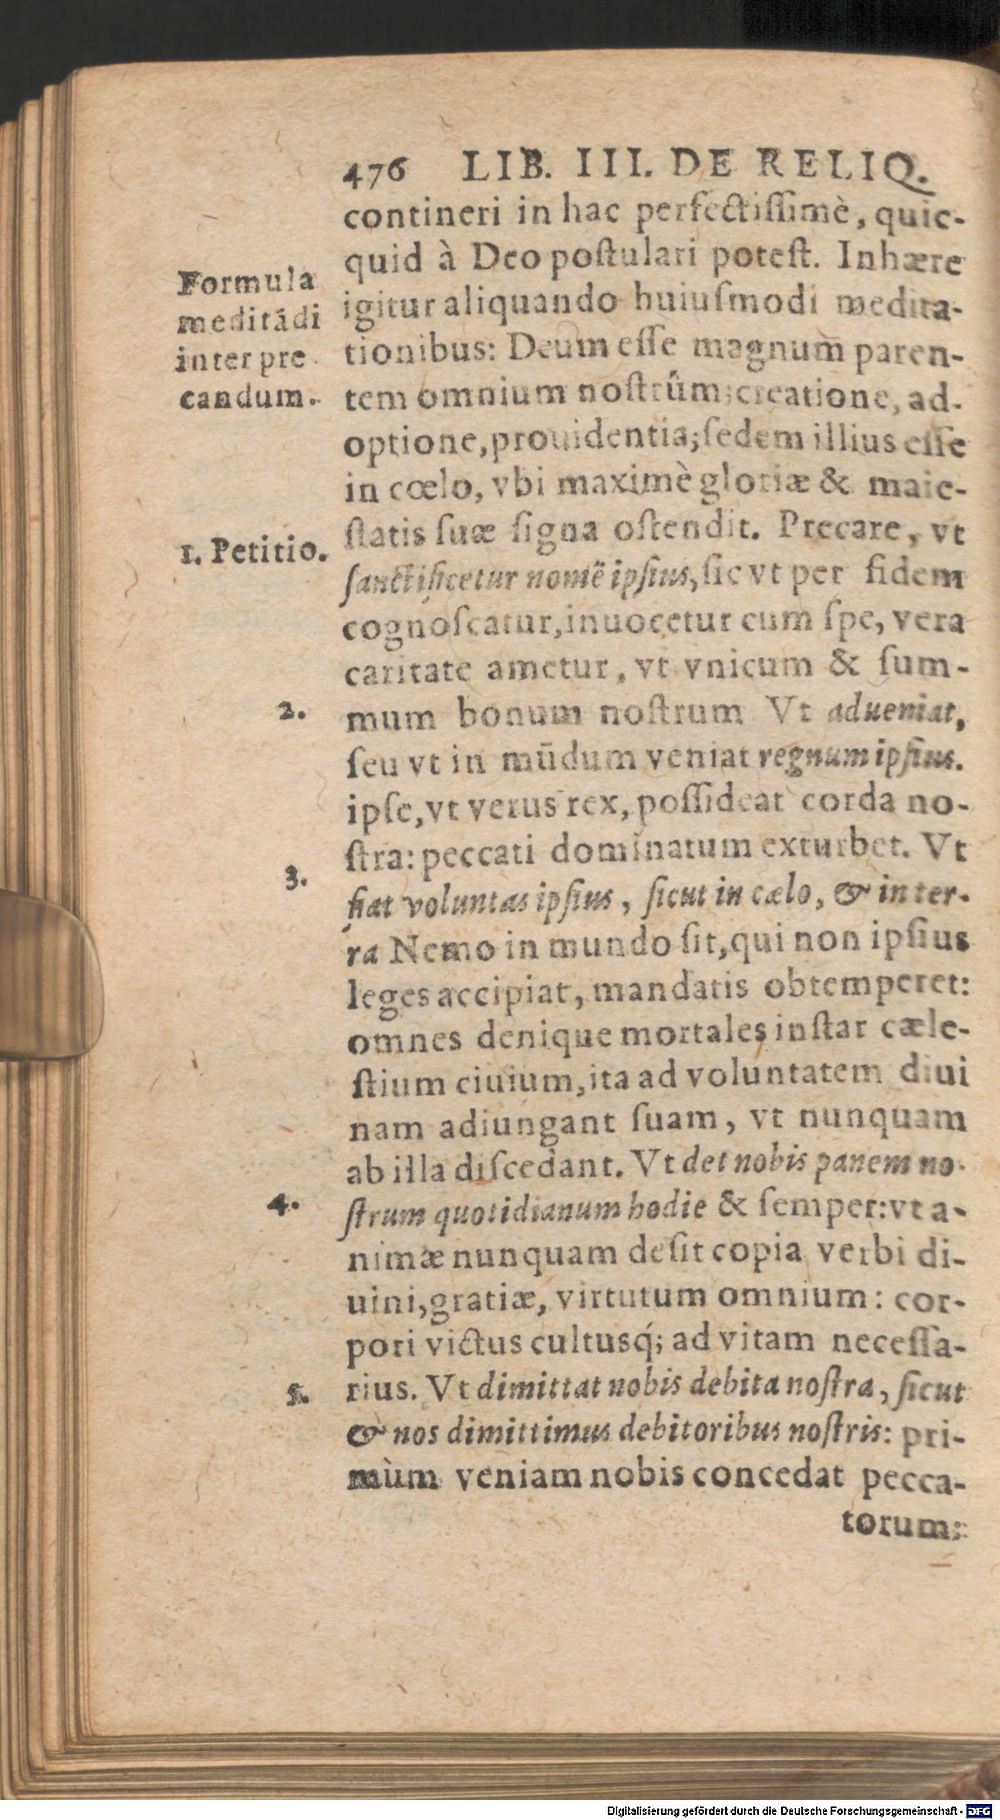 476 LIB. III. DE RELIQ.
contineri in hac perfectiſſimè, quic-
quid à Deo poſtulari poteſt. Inhære
igitur aliquando huiuſmodi medita-
tionibus: Deum eſſe magnum paren-
tem omnium noſtrûm; creatione, ad-
optione, prouidentia; ſedem illius eſſe
in cœlo, vbi maximè gloriæ & maie-
ſtatis ſuæ ſigna oſtendit. Precare, vt
ſanctificetur nomē ipſius, ſic vt per fidem
cognoſcatur, inuocetur cum ſpe, vera
caritate ametur, vt vnicum & ſum-
mum bonum noſtrum Vt adueniat,
ſeu vt in mūdum veniat regnum ipſius.
ipſe, vt verus rex, poſſideat corda no-
ſtra: peccati dominatum exturbet. Vt
fiat voluntas ipſius, ſicut in cælo, & in ter-
ra Nemo in mundo ſit, qui non ipſius
leges accipiat, mandatis obtemperet:
omnes denique mortales inſtar cæle-
ſtium ciuium, ita ad voluntatem diui
nam adiungant ſuam, vt nunquam
ab illa diſcedant. Vt det nobis panem no-
ſtrum quotidianum hodie & ſemper: vt a-
nimæ nunquam deſit copia verbi di-
uini, gratiæ, virtutum omnium: cor-
pori victus cultusq́; ad vitam neceſſa-
rius. Vt dimittat nobis debita noſtra, ſicut
& nos dimittimus debitoribus noſtris: pri-
mùm veniam nobis concedat pecca-
torum:
Formula
meditādi
inter pre
candum.
1. Petitio.
2.
3.
4.
5.
Digitalisierung gefördert durch die Deutsche Forschungsgemeinschaft - DFG